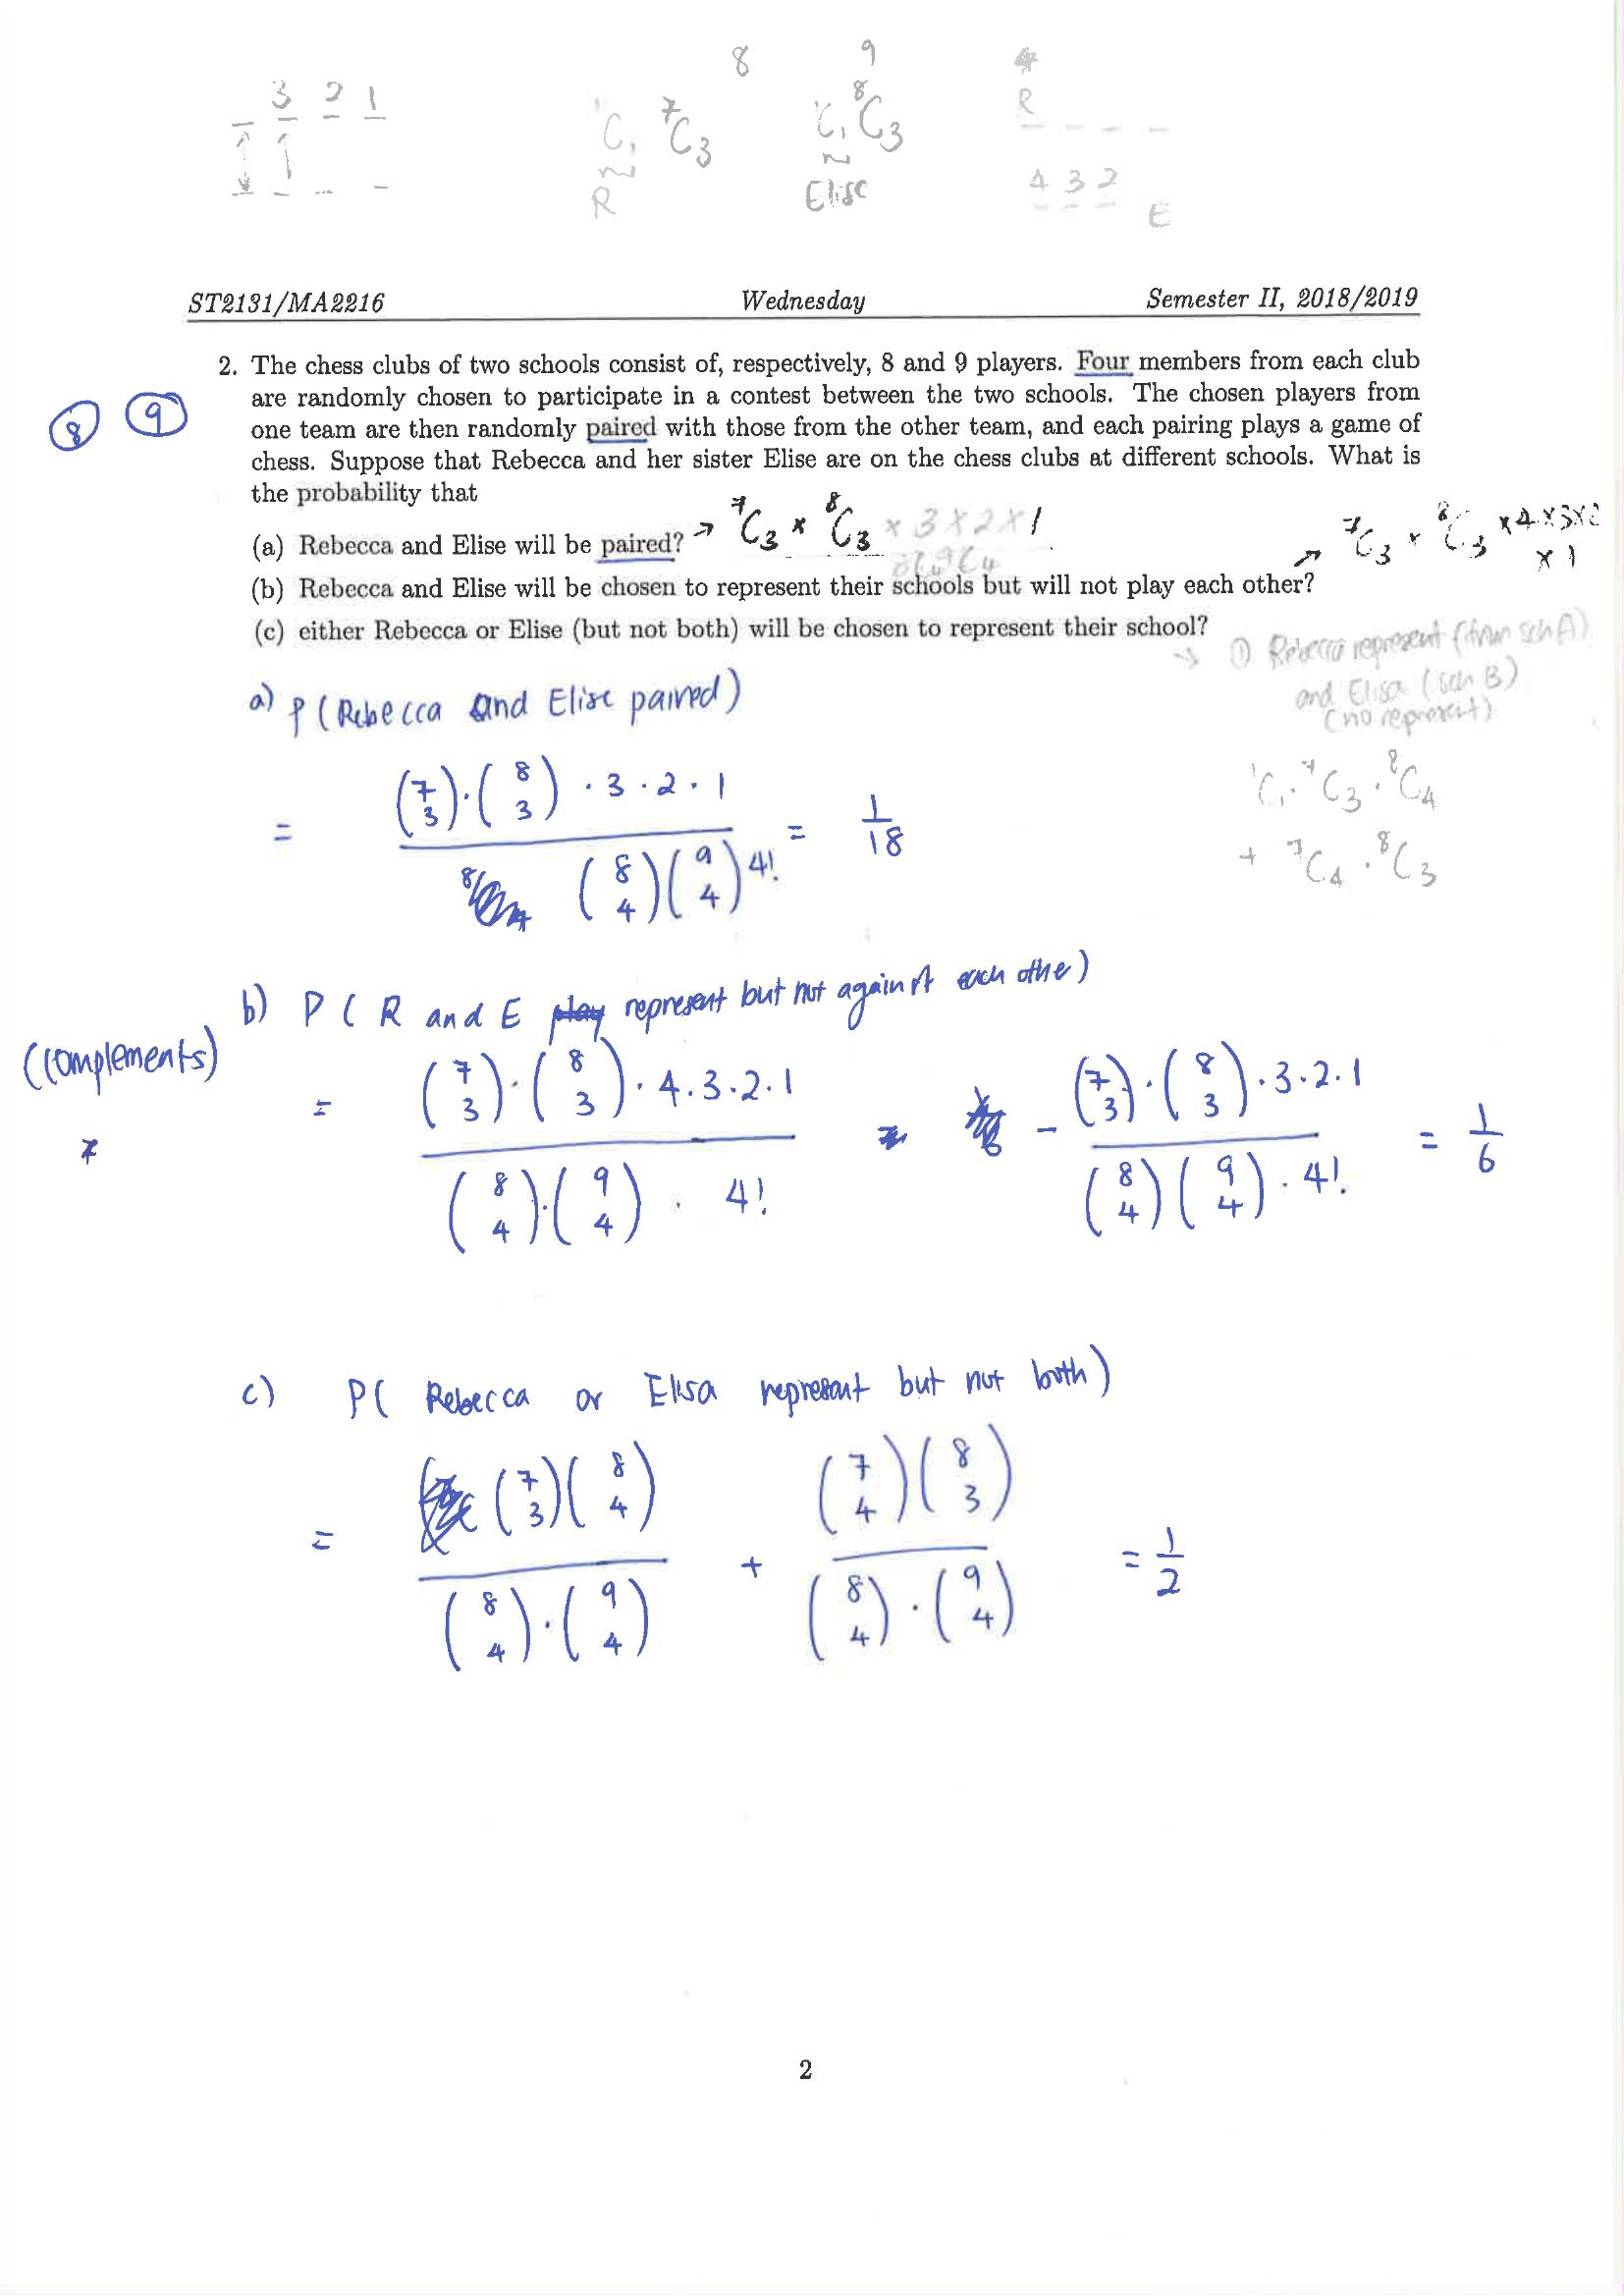 8 9
3 2 1
¹C₁ ⁷C₃ ¹C₁ ⁸C₃
R Elise
R
4 3 2
E
ST2131/MA2216 Wednesday Semester II, 2018/2019
8 9
2. The chess clubs of two schools consist of, respectively, 8 and 9 players. Four members from each club
are randomly chosen to participate in a contest between the two schools. The chosen players from
one team are then randomly paired with those from the other team, and each pairing plays a game of
chess. Suppose that Rebecca and her sister Elise are on the chess clubs at different schools. What is
the probability that
(a) Rebecca and Elise will be paired? → ⁷C₃ × ⁸C₃ × 3 × 2 × 1
⁸C₄ ⁹C₄
(b) Rebecca and Elise will be chosen to represent their schools but will not play each other? → ⁷C₃ × ⁸C₃ × 4 × 3 × 2 × 1
(c) either Rebecca or Elise (but not both) will be chosen to represent their school?
→ ① Rebecca represent (from sch A)
and Elisa (sch B)
(no represent)
¹C₁ · ⁷C₃ · ⁸C₄
+ ⁷C₄ · ⁸C₃
a) P (Rebecca and Elise paired)
= (7 3) · (8 3) · 3 · 2 · 1 / (8 4)(9 4) 4! = 1/18
b) P ( R and E play represent but not against each othe)
(complements)
= (7 3) · (8 3) · 4 . 3 . 2 . 1 / (8 4) · (9 4) . 4! - (7 3) · (8 3) · 3 · 2 · 1 / (8 4)(9 4) · 4! = 1/6
c) P( Rebecca or Elisa represent but not both)
= (7 3)(8 4) / (8 4) · (9 4) + (7 4)(8 3) / (8 4) · (9 4) = 1/2
2